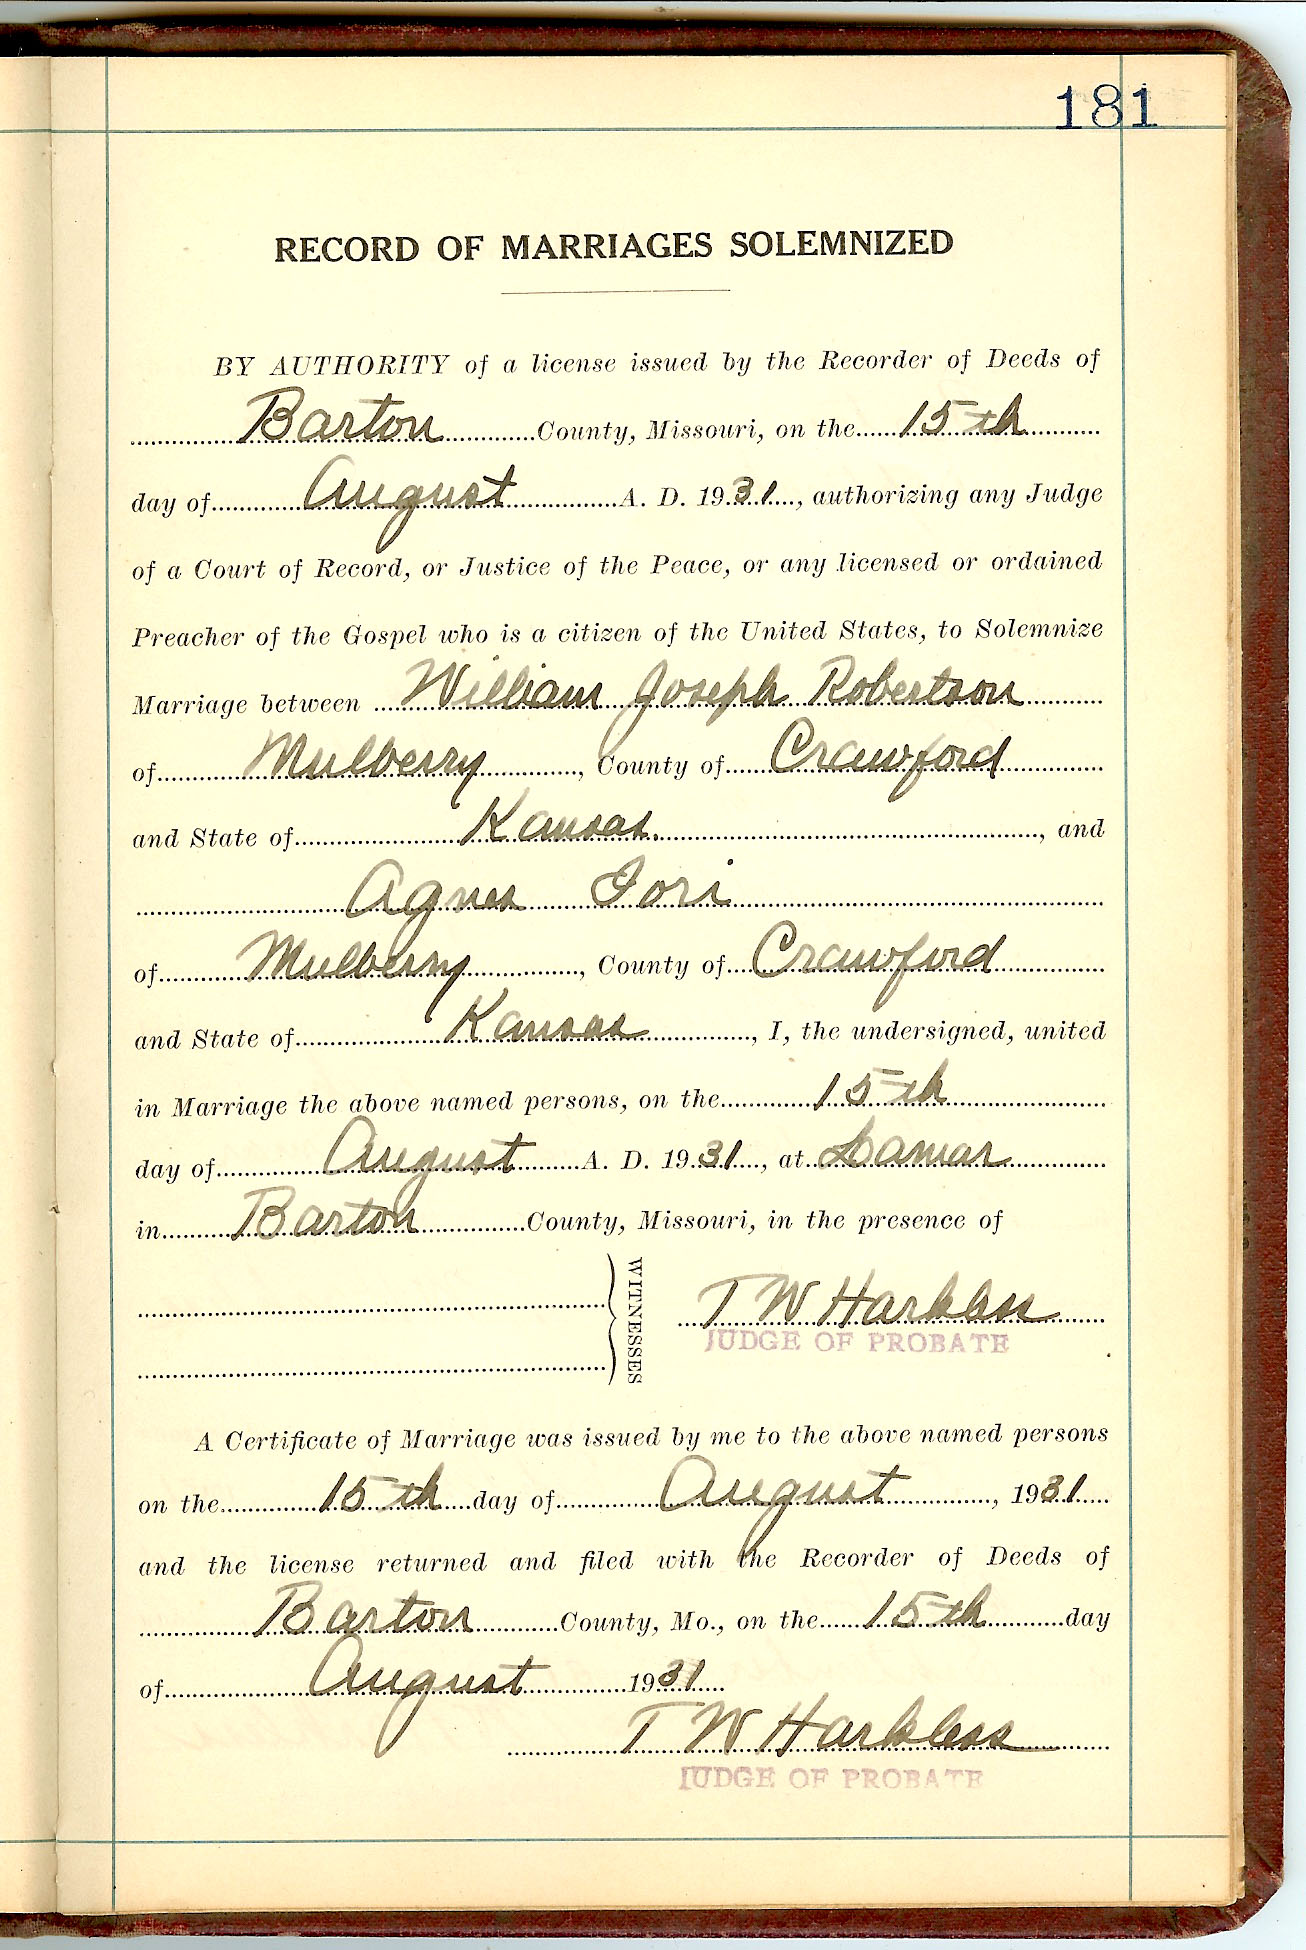 181
RECORD OF MARRIAGES SOLEMNIZED
BY AUTHORITY of a license issued by the Recorder of Deeds of
Barton County, Missouri, on the 15th
day of August A. D. 1931, authorizing any Judge
of a Court of Record, or Justice of the Peace, or any licensed or ordained
Preacher of the Gospel who is a citizen of the United States, to Solemnize
Marriage between William Joseph Robertson
of Mulberry, County of Crawford
and State of Kansas, and
Agnes Iori
of Mulberry, County of Crawford
and State of Kansas, I, the undersigned, united
in Marriage the above named persons, on the 15th
day of August A. D. 1931, at Lamar
in Barton County, Missouri, in the presence of
WITNESSES
T W Harkless
JUDGE OF PROBATE
A Certificate of Marriage was issued by me to the above named persons
on the 15th day of August, 1931
and the license returned and filed with the Recorder of Deeds of
Barton County, Mo., on the 15th day
of August 1931
T W Harkless
JUDGE OF PROBATE